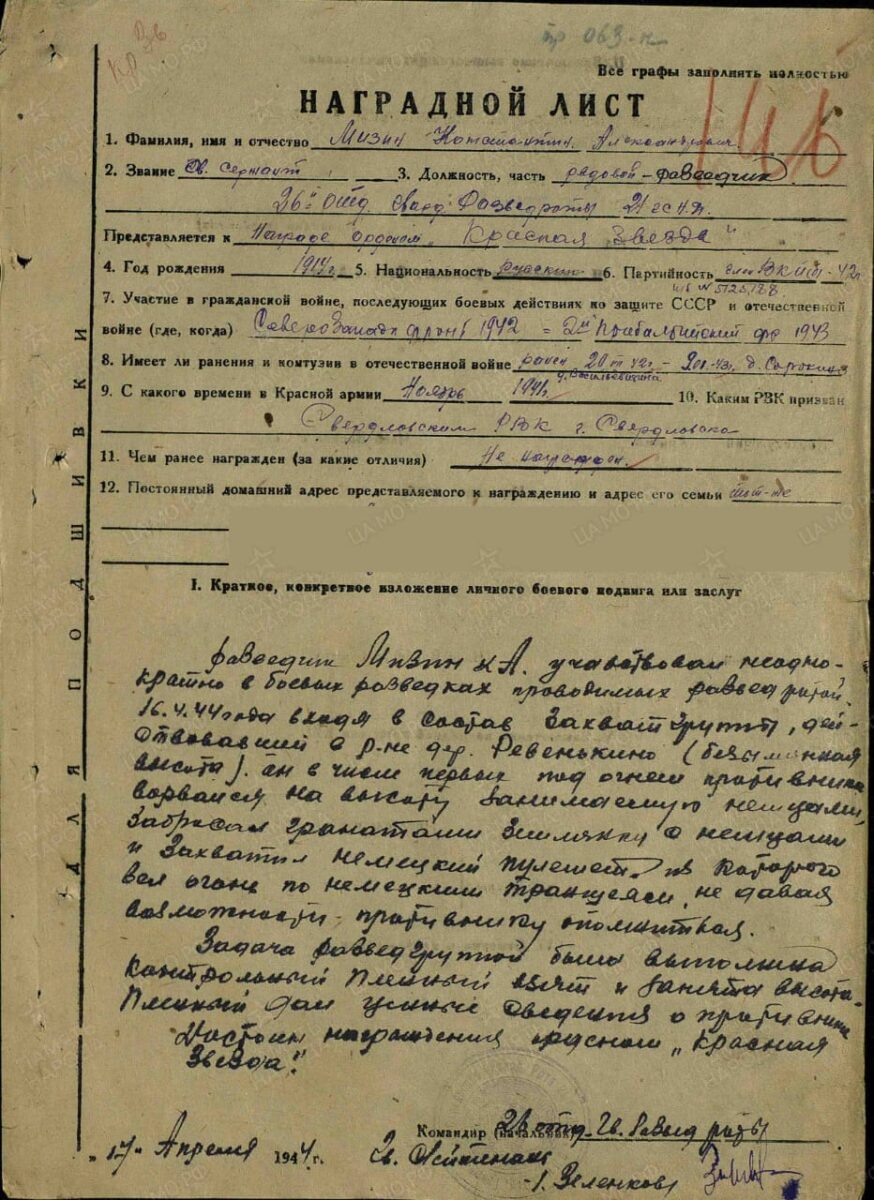 пр 063-н
Все графы заполнять полностью
НАГРАДНОЙ ЛИСТ
1. Фамилия, имя и отчество Мизин Константин Александрович
2. Звание Гв. Сержант 3. Должность, часть рядовой-разведчик
26й отд. Гвард. Разведроты 21 гсп.д.
Представляется к награде орденом „Красная Звезда"
4. Год рождения 1914г 5. Национальность русский 6. Партийность член ВКПб-42г
7. Участие в гражданской войне, последующих боевых действиях по защите СССР и отечественной
войне (где, когда) Северо Запад фронт 1942 = 2й Прибалтийский фр 1943
8. Имеет ли ранения и контузии в отечественной войне ранен
9. С какого времени в Красной армии Ноябрь 1941г. 10. Каким РВК призван
Свердловским РВК г. Свердловска
11. Чем ранее награжден (за какие отличия) Не награжден.
12. Постоянный домашний адрес представляемого к награждению и адрес его семьи
ДЛЯ ПОДШИВКИ
I. Краткое, конкретное изложение личного боевого подвига или заслуг
Разведчик Мизин К А. участвовал неодно-
кратно в боевых разведках проводимых разведротой.
16.4.44 года входя в состав Захват группы, дей-
ствовавший в р-не дер. Ревенькино (безымянная
высота). он в числе первых под огнем противника
ворвался на высоту занимаемую немцами,
Забросал гранатами Землянку с немцами
и Захватил немецкий пулемет, из которого
вел огонь по немецким траншеям, не давая
возможности противнику опомниться.
Задача разведгруппой была выполнена
Контрольный пленный взят и занята высота.
Пленный дал ценные сведения о противнике
Достоин награждения орденом „Красная
Звезда".
Командир (начальник) 26 отд. Гв. Развед роты
„17" Апреля 1944г. Гв. Лейтенант
Зеленков